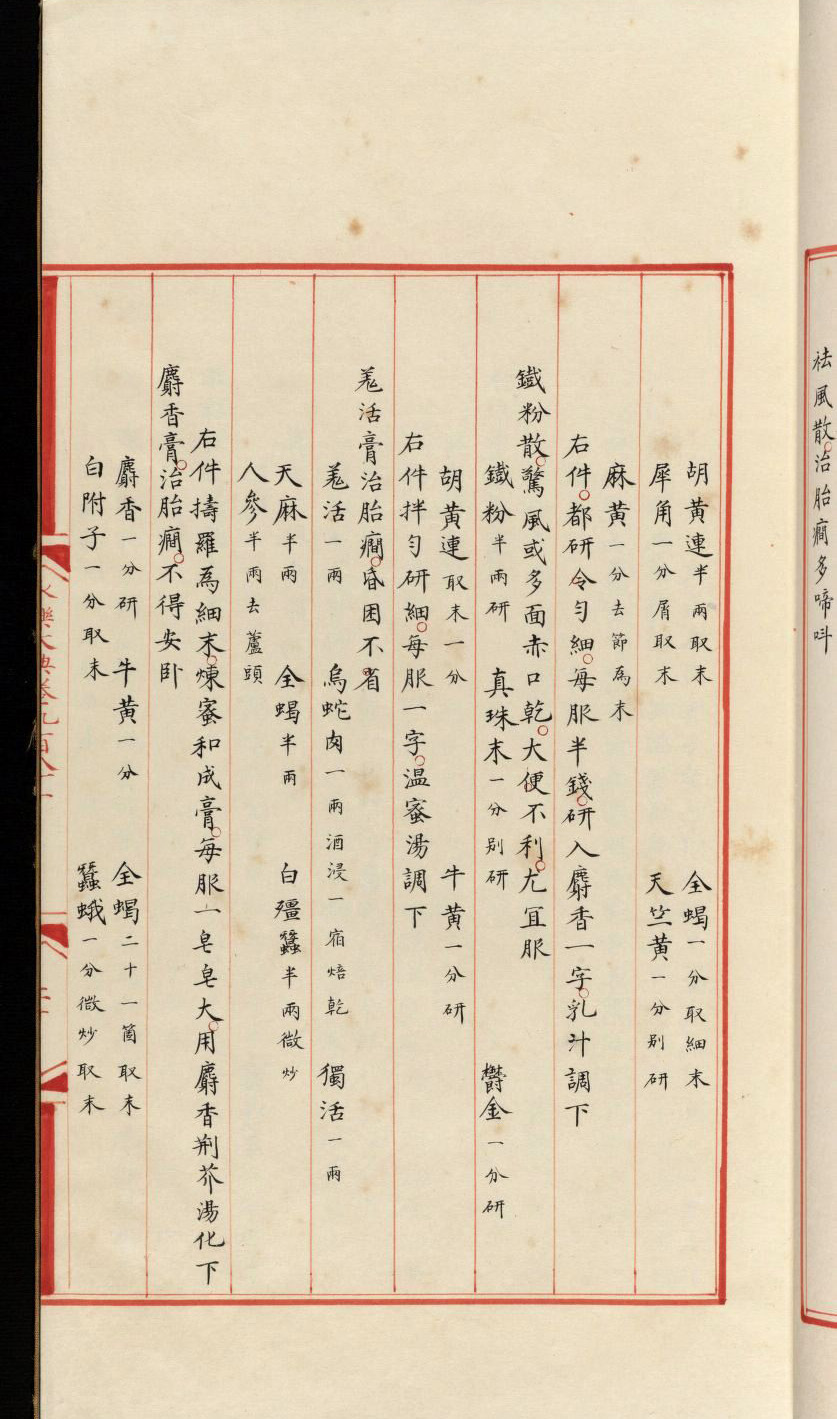 祛風散治胎癎多啼呌
胡黃連半兩取末 全蝎一分取細末
犀角一分屑取末 天竺黃一分别研
麻黃一分去節為末
右件都研令勻細每服半錢研入麝香一字乳汁調下
鐵粉散驚風或多面赤口乾大便不利尤宜服
鐵粉半兩研 真珠末一分别研 欝金一分研
胡黃連取末一分 牛黃一分研
右件拌勻研細每服一字温蜜湯調下
羗活膏治胎癎昏困不省
羗活一兩 烏蛇肉一兩酒浸一宿焙乾 獨活一兩
天麻半兩 全蝎半兩 白殭蠶半兩微炒
人參半兩去蘆頭
右件擣羅為細末煉蜜和成膏每服一皂皂大用麝香荆芥湯化下
麝香膏治胎癎不得安卧
麝香一分研 牛黃一分 全蝎二十一箇取末
白附子一分取末 蠶蛾一分微炒取末